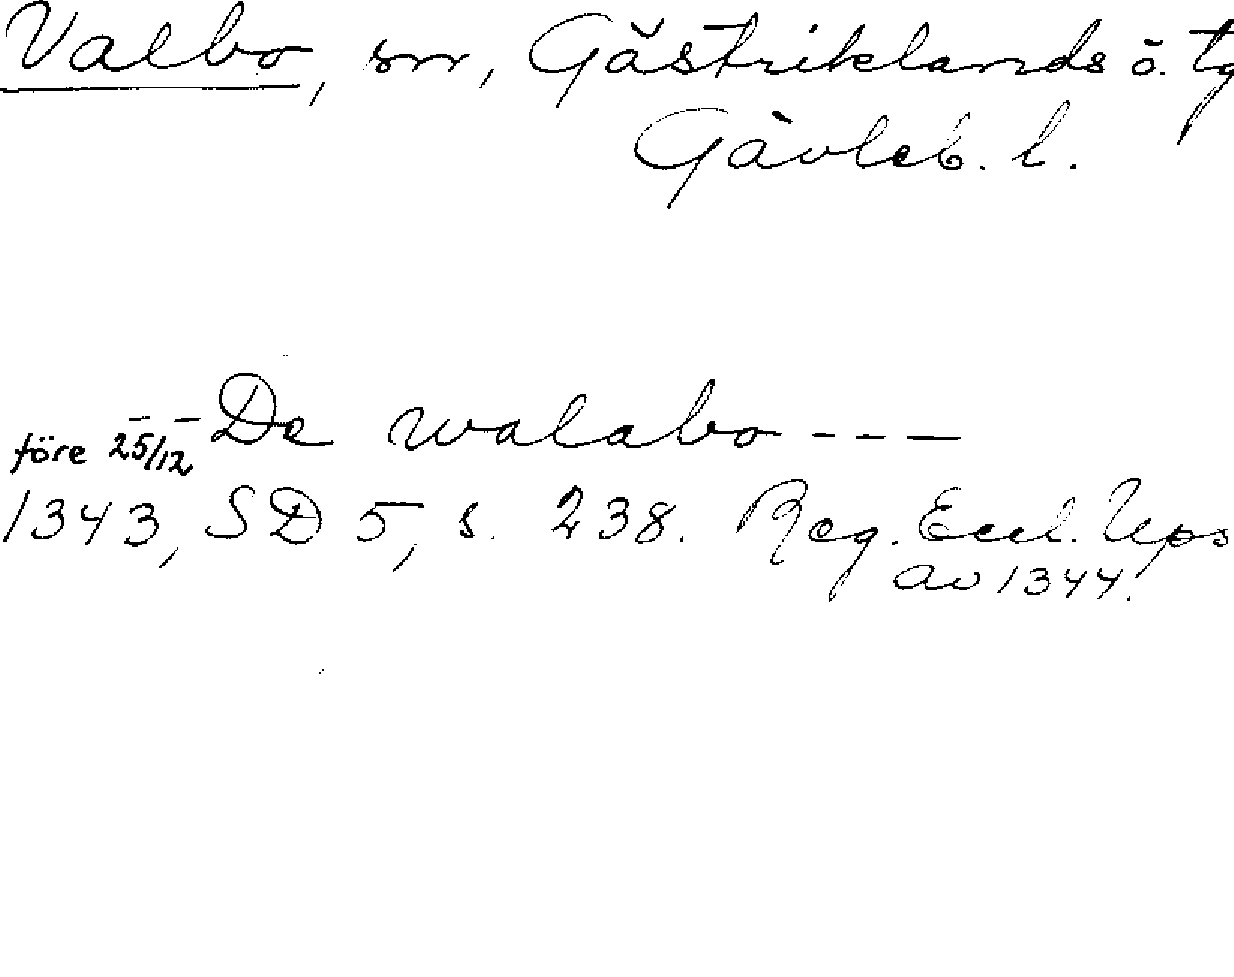 Valbo, sn, Gästriklands ö. tg
Gävleb. l.
-- De walabo ---
före 25/12
1343, SD 5, s. 238. Reg. Eccl. Ups
av 1344.